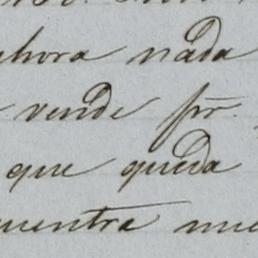 ahora nada
vende pr.
que queda
uentra nue